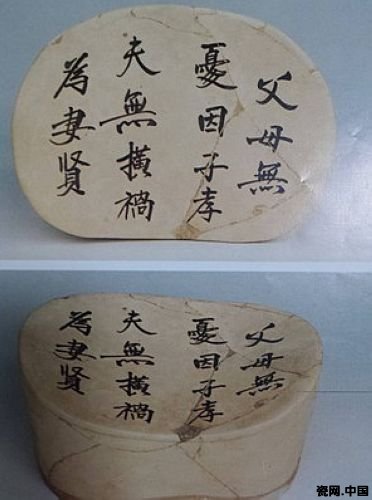 父母無
憂因子孝
夫無橫禍
為妻賢
父母無
憂因子孝
夫無橫禍
為妻賢
瓷网.中国